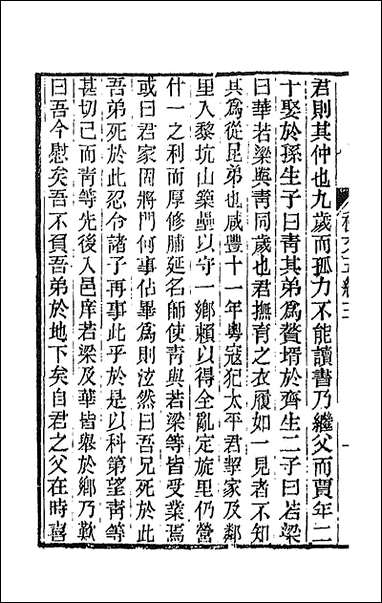 君則其仲也九歲而孤力不能讀書乃繼父而賈年二
十娶於孫生子曰靑其弟爲贅壻於齊生二子曰若梁
曰華若梁與靑同歲也君撫育之衣履如一見者不知
其爲從昆弟也咸豐十一年粵寇犯太平君挈家及鄰
里入黎坑山築壘以守一鄕賴以得全亂定旋里仍營
什一之利而厚修脯延名師使靑與若梁等皆受業焉
或曰君家固將門何事佔畢爲則泫然曰吾兄死於此
吾弟死於此忍令諸子再事此乎於是以科第望靑等
甚切已而靑等先後入邑庠若梁及華皆舉於鄕乃歎
曰吾今慰矣吾不負吾弟於地下矣自君之父在時喜